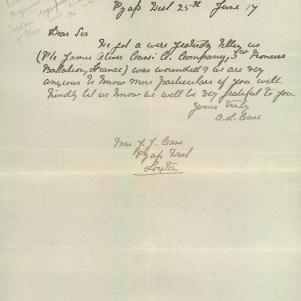 Pyap West 25th June 17
Dear Sir
We got a wire yesterday telling us
(Pte James Oliver Cass C. Company, 3rd Pioneers
Battalion, France) was wounded & we are very
anxious to know more particulars if you will
kindly let us know we will be very grateful to you
Yours truly
A. L. Cass
Mrs J. J. Cass
Pyap West
Loxton